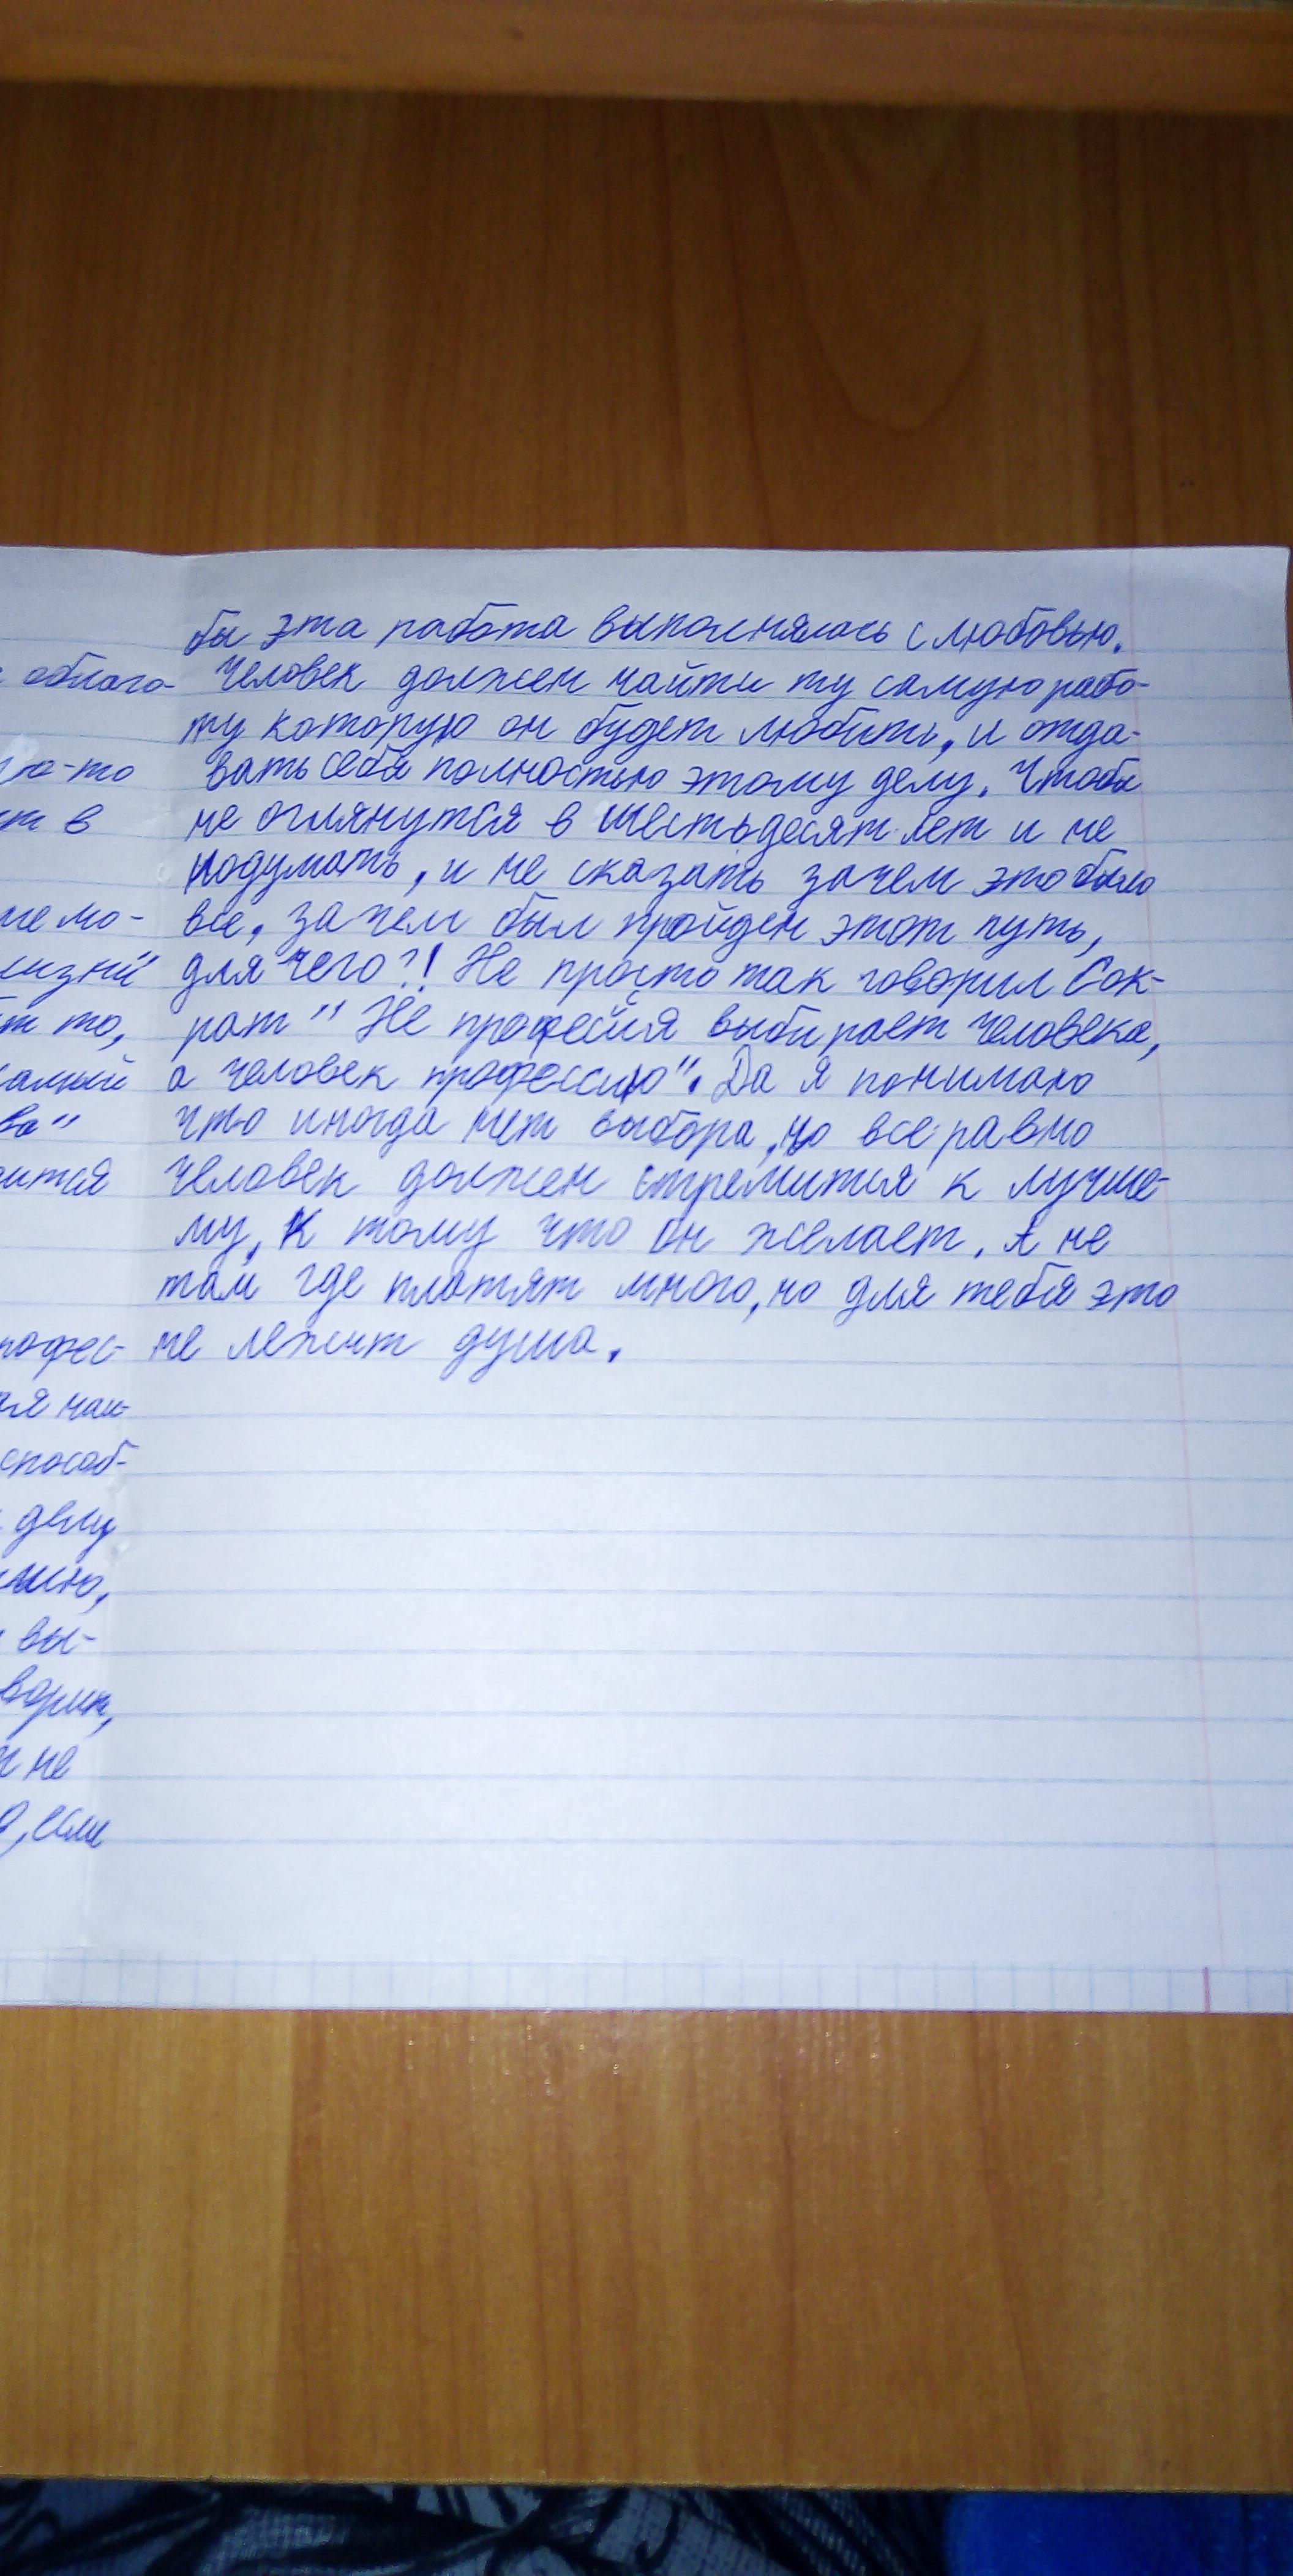 бы эта работа выполнялась с любовью.
Человек должен найти ту самую рабо-
ту которую он будет любить, и отда-
вать себя полностью этому делу. Чтобы
не оглянутся в шестьдесят лет и не
подумать, и не сказать зачем это было
все, зачем был пройден этот путь,
для чего?! Не просто так говорил Сок-
рат " Не професия выбирает человека,
а человек профессию". Да я понимаю
что иногда нет выбора, но все равно
человек должен стремится к лучше-
му, к тому что он желает. А не
там где платят много, но для тебя это
не лежит душа.
облаго-
ю-то
в
мо-
то,
ва"
профес-
способ-
делу
вы-
не
если